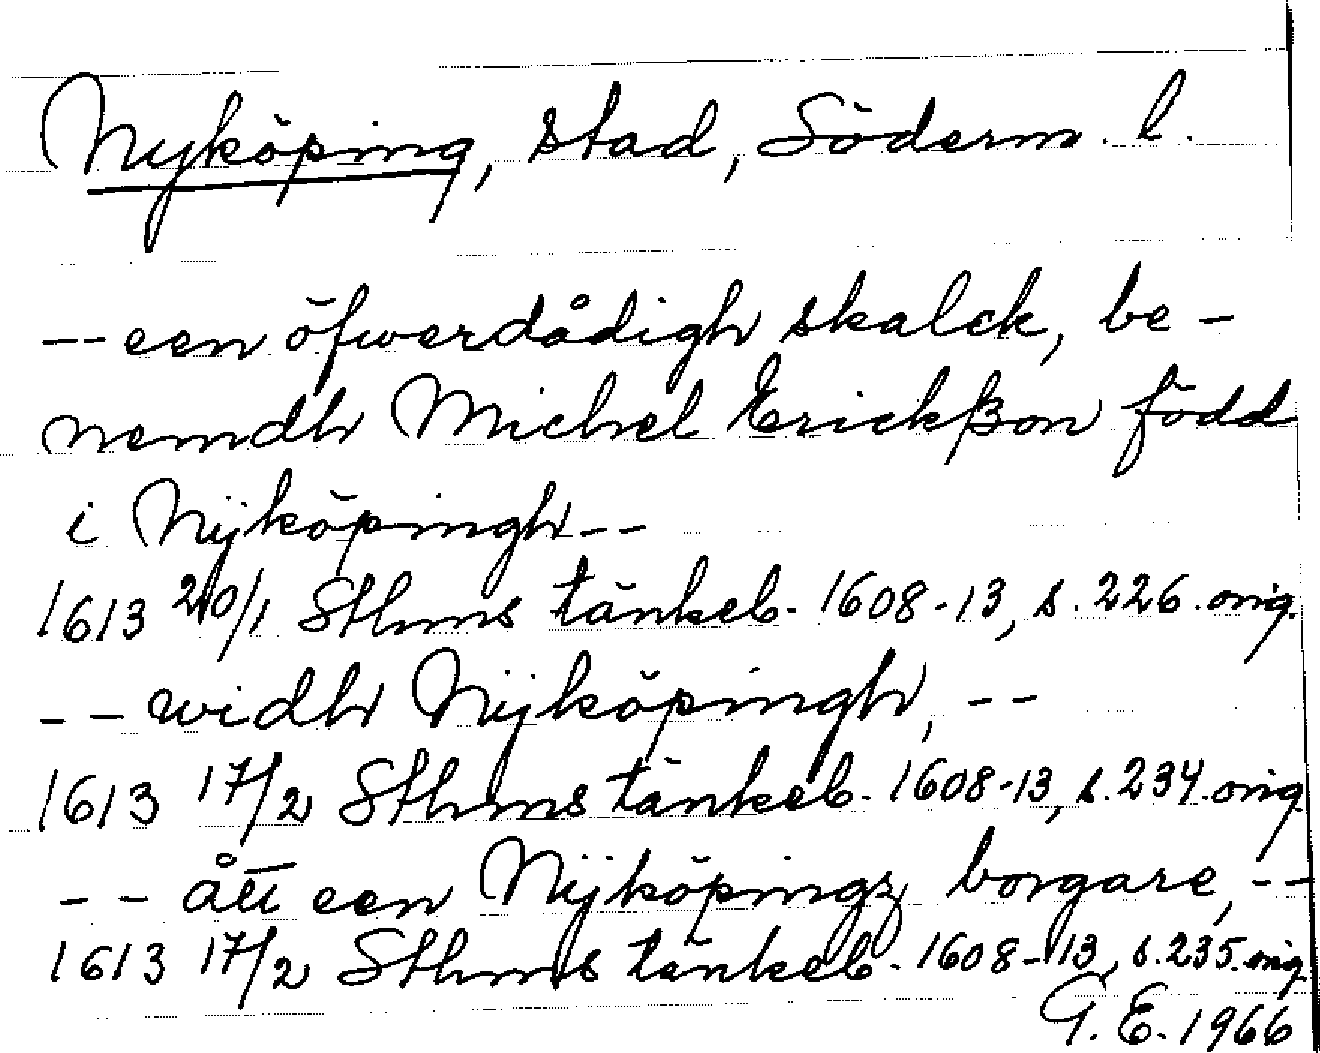 Nyköping, stad, Söderm. l.
-- een öfwerdådigh skalck, be-
nemdh Michel Erickßon född
i Nijköpingh --
1613 20/1 Sthms tänkeb. 1608-13, s. 226. orig.
-- widh Nijköpingh, --
1613 17/2 Sthms tänkeb. 1608-13, s. 234. orig.
-- ått een Nijköpingz borgare, --
1613 17/2 Sthms tänkeb. 1608-13, s. 235. orig.
G. E. 1966